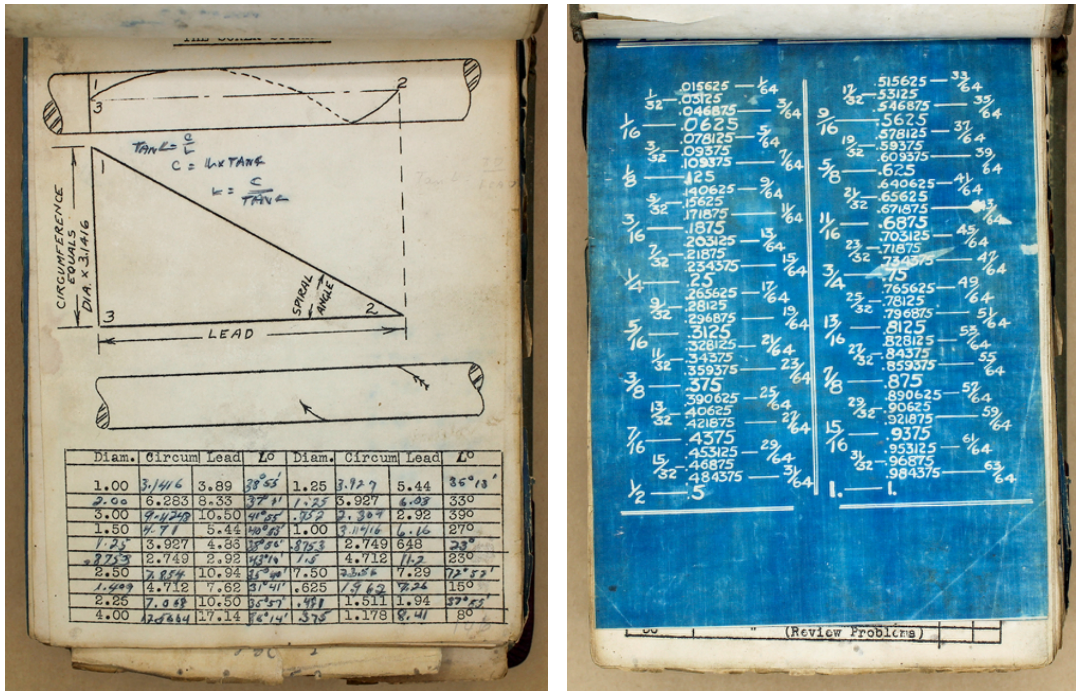 TAN∠ = C/L
C = L x TAN∠
L = C/TAN∠
1
3
2
1
3
2
CIRCUMFERENCE
EQUALS
DIA. x 3.1416
SPIRAL
ANGLE
LEAD
Diam. Circum Lead L° Diam. Circum Lead L°
1.00 3.1416 3.89 38°55' 1.25 3.927 5.44
2.00 6.283 8.33 1.25 3.927 33°
3.00 10.50 2.92 39°
1.50 5.44 1.00 27°
1.25 3.927 4.86 .8753 2.749 648 23°
.8753 2.749 2.92 1.5 4.712 11.2 23°
2.50 7.854 10.94 7.50 7.29
4.712 7.62 31°41' .625 15°
2.25 10.50 1.511 1.94
4.00 17.14 .375 1.178 8.41 8°
.015625 — 1/64
1/32 — .03125
.046875 — 3/64
1/16 — .0625
.078125 — 5/64
3/32 — .09375
.109375 — 7/64
1/8 — .125
.140625 — 9/64
5/32 — .15625
.171875 — 11/64
3/16 — .1875
.203125 — 13/64
7/32 — .21875
.234375 — 15/64
1/4 — .25
.265625 — 17/64
9/32 — .28125
.296875 — 19/64
5/16 — .3125
.328125 — 21/64
11/32 — .34375
.359375 — 23/64
3/8 — .375
.390625 — 25/64
13/32 — .40625
.421875 — 27/64
7/16 — .4375
.453125 — 29/64
15/32 — .46875
.484375 — 31/64
1/2 — .5
.515625 — 33/64
17/32 — .53125
.546875 — 35/64
9/16 — .5625
.578125 — 37/64
19/32 — .59375
.609375 — 39/64
5/8 — .625
.640625 — 41/64
21/32 — .65625
.671875 — 43/64
11/16 — .6875
.703125 — 45/64
23/32 — .71875
.734375 — 47/64
3/4 — .75
.765625 — 49/64
25/32 — .78125
.796875 — 51/64
13/16 — .8125
.828125 — 53/64
27/32 — .84375
.859375 — 55/64
7/8 — .875
.890625 — 57/64
29/32 — .90625
.921875 — 59/64
15/16 — .9375
.953125 — 61/64
31/32 — .96875
.984375 — 63/64
1. — 1.
" (Review Problems)